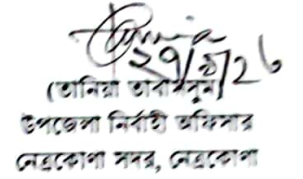 ২৭/৪/২৬
(তানিয়া তাবাসসুম)
উপজেলা নির্বাহী অফিসার
নেত্রকোণা সদর, নেত্রকোণা